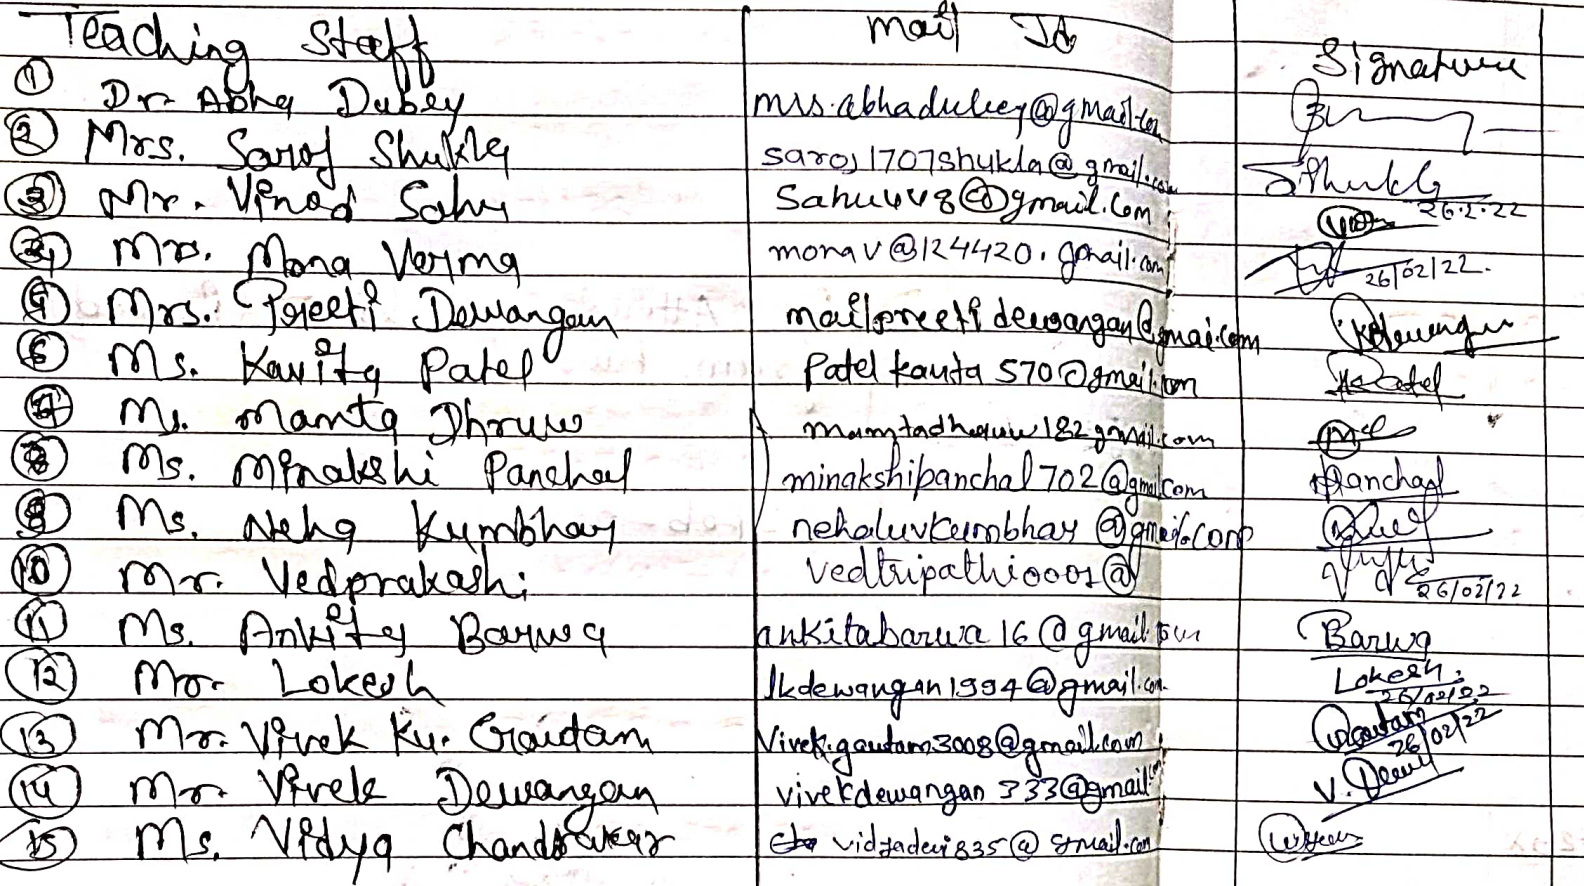 Teaching Staff Mail Id Signature
① Dr. Abha Dubey mrs.abhadubey@gmail.com
② Mrs. Saroj Shukla saroj1707shukla@gmail.com SShukla 26.2.22
③ Mr. Vinod Sahu Sahu448@gmail.com
④ Mrs. Mona Verma monav@124420.gmail.com 26/02/22.
⑤ Mrs. Preeti Dewangan mailpreetidewangan@gmai.com
⑥ Ms. Kavita Patel Patelkavita570@gmail.com Patel
⑦ Ms. Mamta Dhruw 182gmail.com
⑧ Ms. Minakshi Panchal minakshipanchal702@gmail.com Panchal
⑨ Ms. Neha Kumbhar nehaluvkumbhar@gmail.com
⑩ Mr. Vedprakash vedtripathi0001@ 26/02/22
⑪ Ms. Ankita Barwa ankitabarwa16@gmail.com Barwa
⑫ Mr. Lokesh lkdewangan1994@gmail.com Lokesh 26/02/22
⑬ Mr. Vivek Ku. Gautam Vivek.gautam3008@gmail.com Gautam 26/02/22
⑭ Mr. Vivek Dewangan vivekdewangan333@gmail.com V. Dewan
⑮ Ms. Vidya Chandrakar vidyadevi835@gmail.com